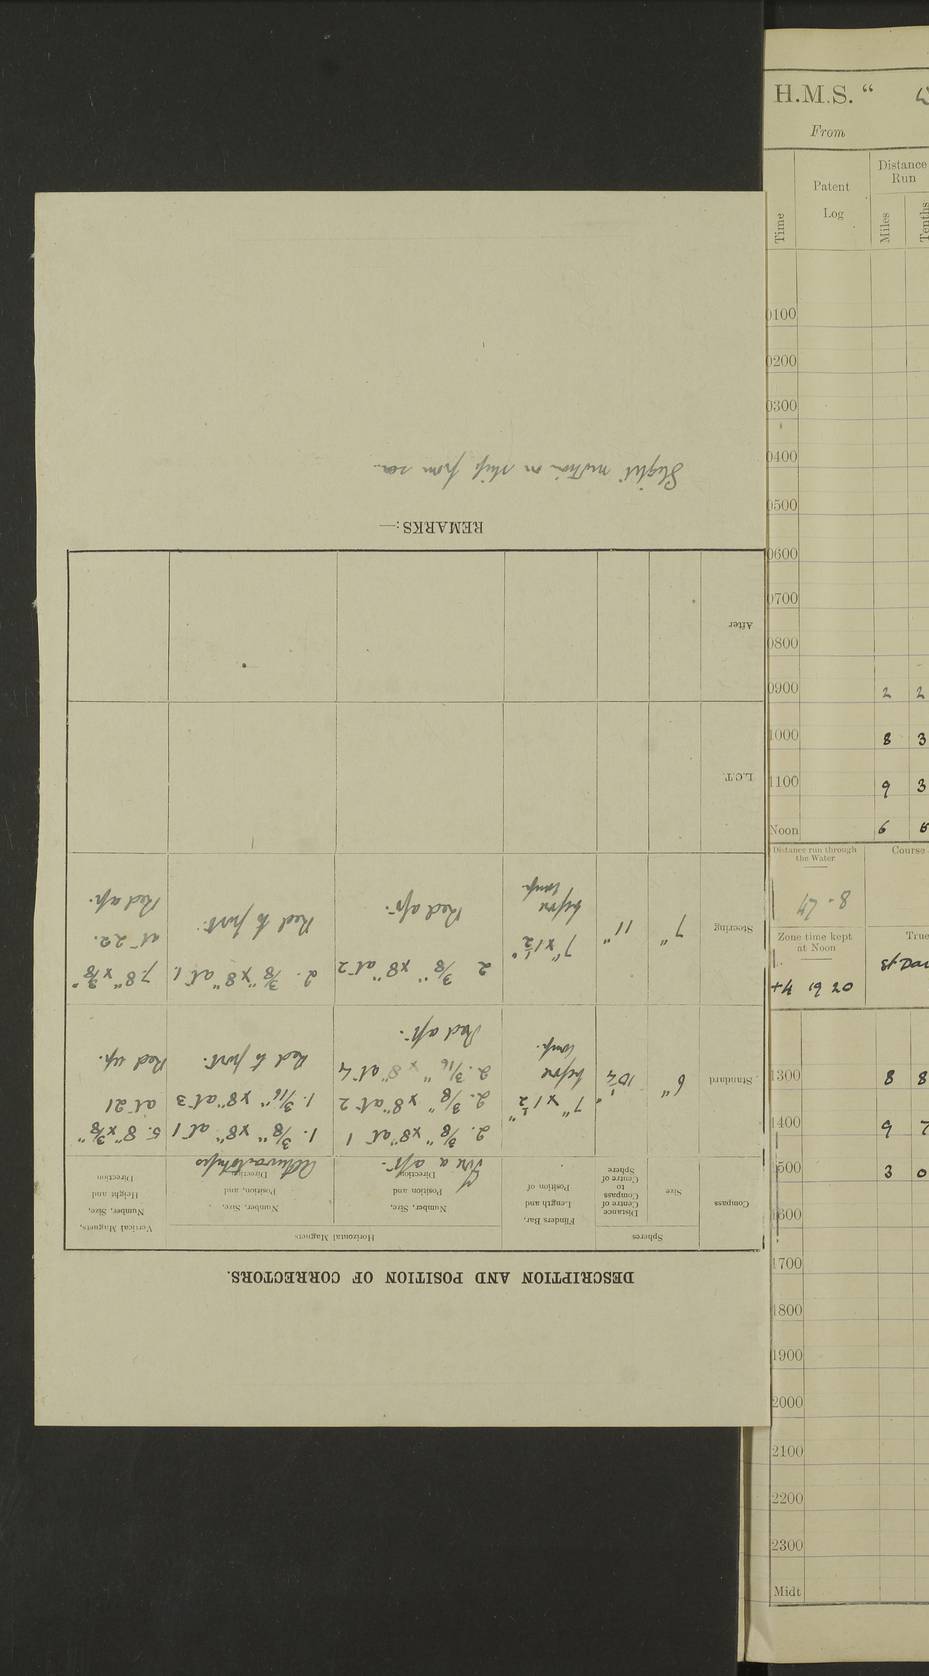 DESCRIPTION AND POSITION OF CORRECTORS.
Compass
Spheres
Size
Distance Centre of Compass to Centre of Sphere
Flinders Bar, Length and Position of
Horizontal Magnets
Number, Size, Position and Direction
Fore & aft.
Number, Size, Position, and Direction
Athwartships
Vertical Magnets, Number, Size, Height and Direction
Standard
6"
10¼"
7" x 1½"
before
comp.
2. 3/8" x8" at 1
2. 3/8" x8" at 2
2. 3/16" x8" at 4
Red aft.
1. 3/8" x8" at 1
1. 3/16" x8" at 3
Red to port.
5. 8" x 3/8"
at 21
Red up.
Steering
7"
11"
7" x 1½"
before
comp.
2 3/8" x8" at 2
Red aft.
2. 3/8" x8" at 1
Red to port.
7 8" x 3/8"
at 22.
L.C.T.
After
REMARKS:—
Slight motion on ship from sea.
H.M.S. "
From
Time
Patent
Log
Distance
Run
Miles
Tenths
0100
0200
0300
0400
0500
0600
0700
0800
0900 2 2
1000 8 3
1100 9 3
Noon 6
Distance run through
the Water
Course
Zone time kept
at Noon
True
+4
1300 8 8
1400 9 7
1500 3 0
1600
1700
1800
1900
2000
2100
2200
2300
Midt